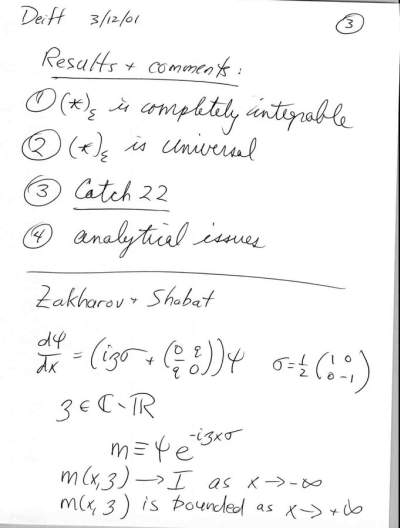 Deift 3/12/01 ③
Results + comments:
① (*)ε is completely integrable
② (*)ε is universal
③ Catch 22
④ analytical issues
Zakharov + Shabat
dψ/dx = (izσ + (0 q q 0))ψ σ = ½ (1 0 0 -1)
z ∈ ℂ - ℝ
m ≡ ψ e^{-izxσ}
m(x,z) → I as x → -∞
m(x,z) is bounded as x → +∞